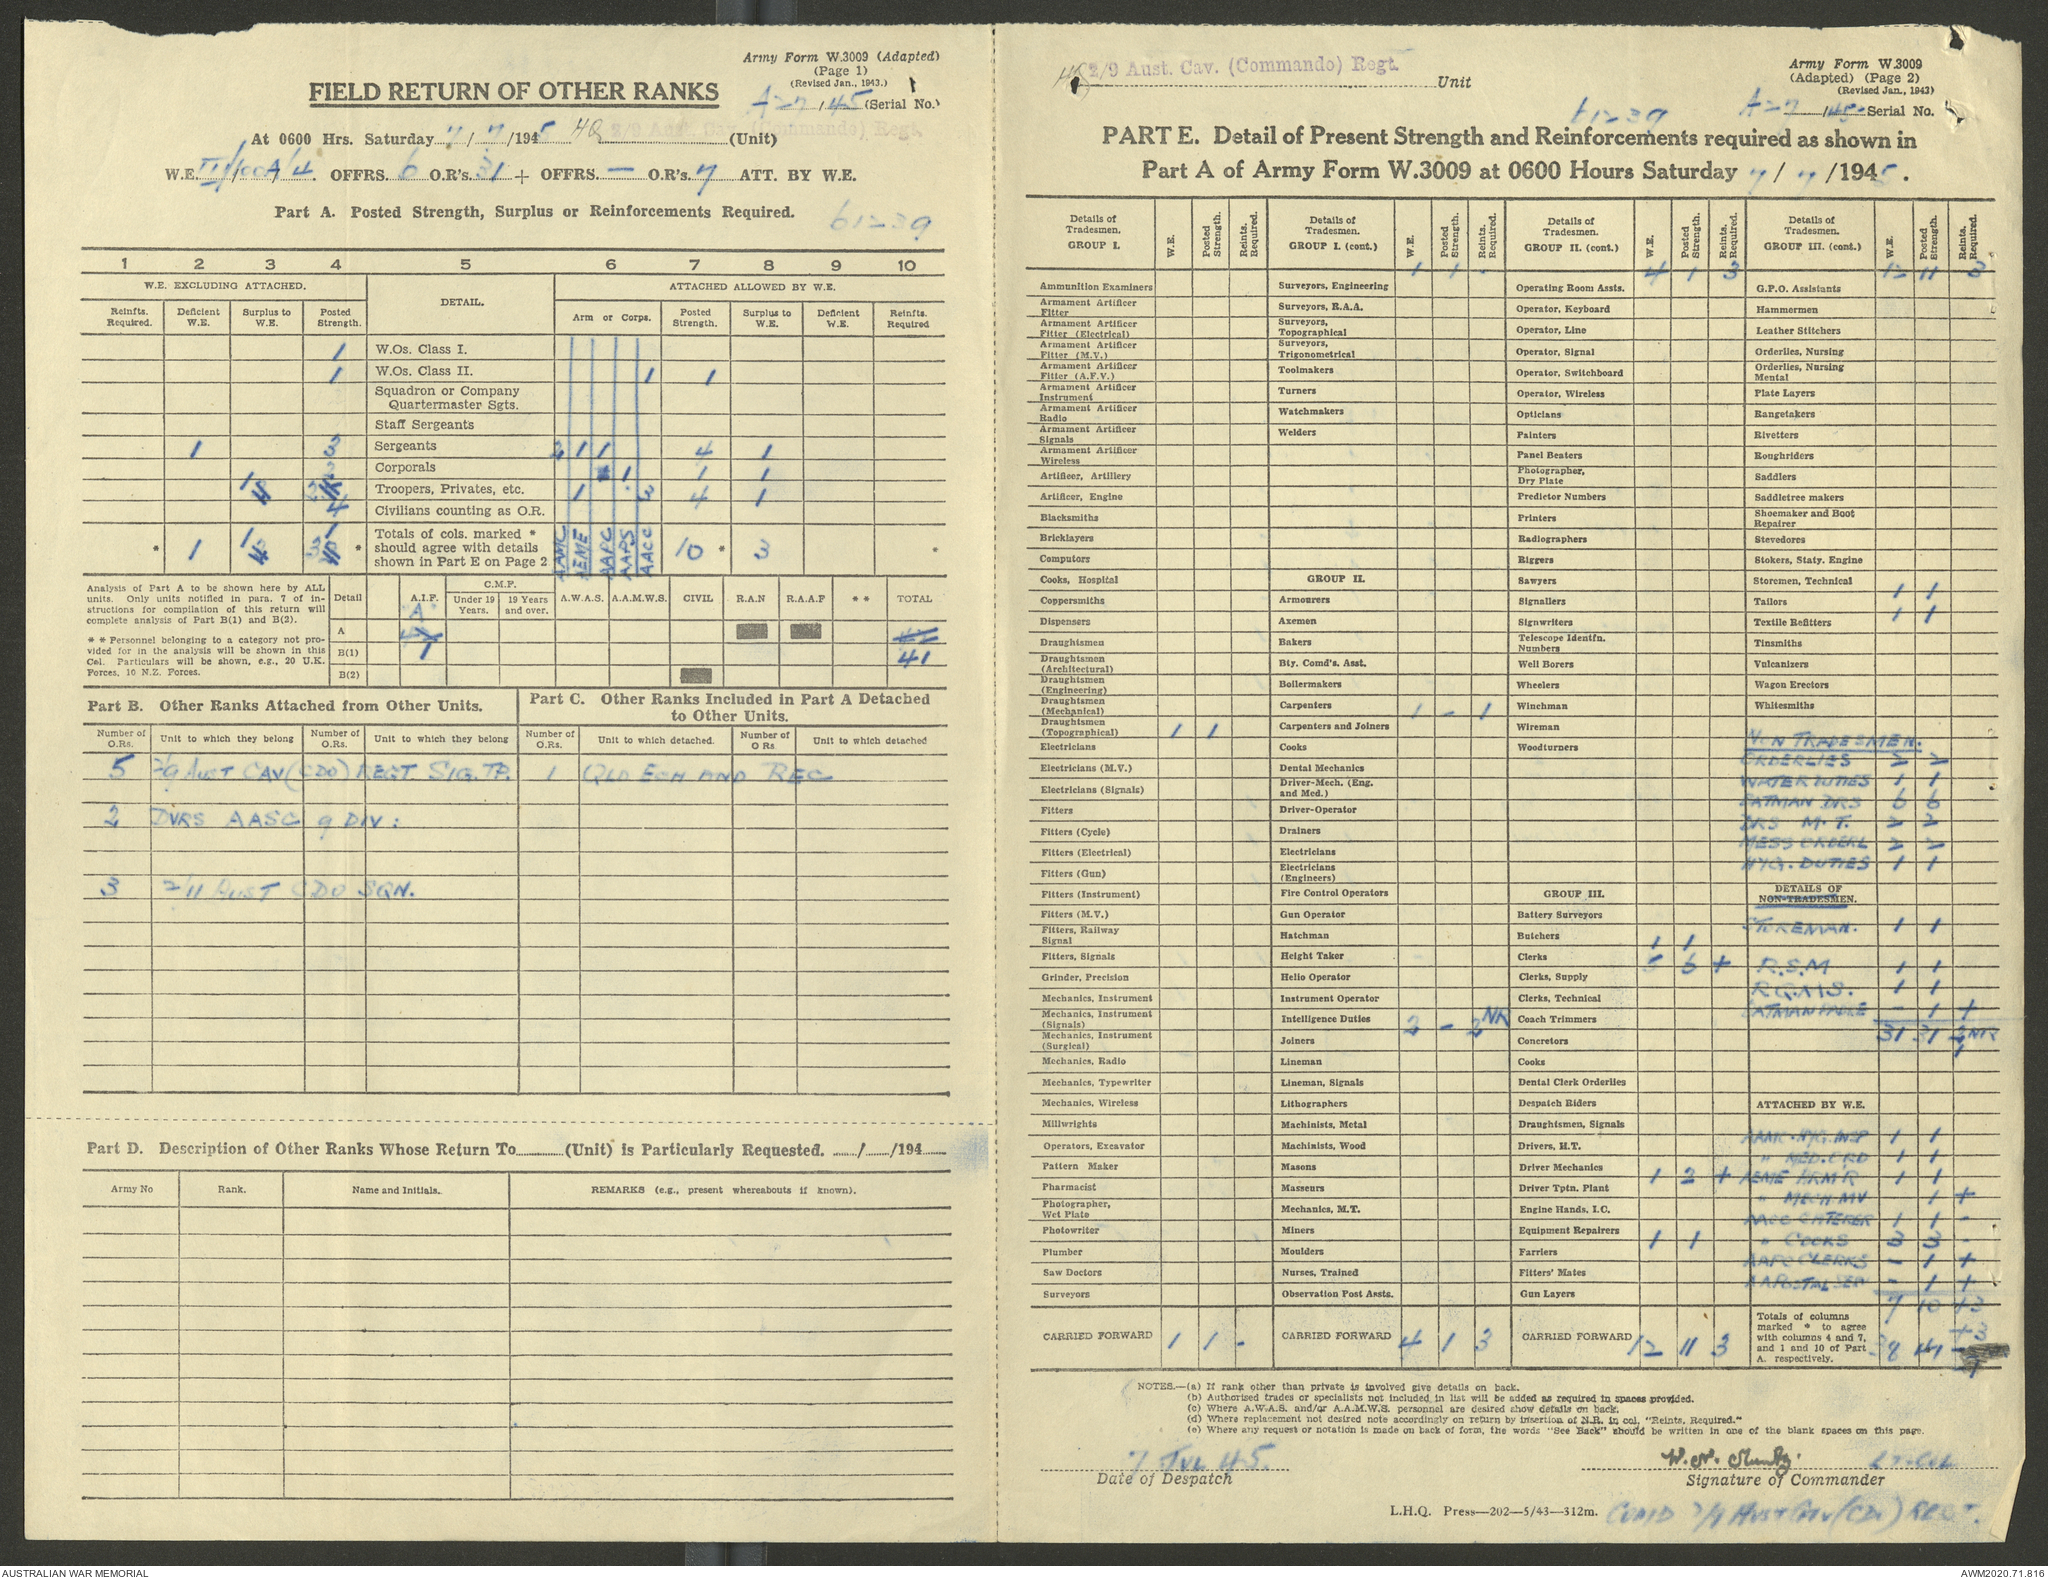 Army Form W.3009 (Adapted)
(Page 1)
(Revised Jan., 1943.)
FIELD RETURN OF OTHER RANKS
A27/45 (Serial No.)
At 0600 Hrs. Saturday 7/7/1945 HQ 2/9 Aust. Cav. (Commando) Regt. (Unit)
W.E. III/100A/4 OFFRS. 6 O.R's. 31 + OFFRS. — O.R's. 7 ATT. BY W.E.
Part A. Posted Strength, Surplus or Reinforcements Required.
61239
1 2 3 4 5 6 7 8 9 10
W.E. EXCLUDING ATTACHED. DETAIL. ATTACHED ALLOWED BY W.E.
Reinfts. Required. Deficient W.E. Surplus to W.E. Posted Strength. Arm or Corps. Posted Strength. Surplus to W.E. Deficient W.E. Reinfts. Required
1 W.Os. Class I.
1 W.Os. Class II. 1 1
Squadron or Company Quartermaster Sgts.
Staff Sergeants
1 3 Sergeants 2 1 1 4 1
Corporals 1 1 1
Troopers, Privates, etc. 1 3 4 1
Civilians counting as O.R.
* 1 * Totals of cols. marked * should agree with details shown in Part E on Page 2 AAMC AEME AAPC AAPS AACC 10 * 3 *
Analysis of Part A to be shown here by ALL units. Only units notified in para. 7 of instructions for compilation of this return will complete analysis of Part B(1) and B(2).
* * Personnel belonging to a category not provided for in the analysis will be shown in this Col. Particulars will be shown, e.g., 20 U.K. Forces, 10 N.Z. Forces.
Detail A.I.F. C.M.F. Under 19 Years. 19 Years and over. A.W.A.S. A.A.M.W.S. CIVIL R.A.N R.A.A.F * * TOTAL
A
B(1) 41
B(2)
Part B. Other Ranks Attached from Other Units.
Part C. Other Ranks Included in Part A Detached to Other Units.
Number of O.Rs. Unit to which they belong Number of O.Rs. Unit to which they belong Number of O.Rs. Unit to which detached. Number of O Rs Unit to which detached
5 2/9 AUST CAV (CDO) REGT SIG. TP. 1 QLD ECH AND REC
2 DVRS AASC 9 DIV:
3 2/11 AUST CDO SQN.
Part D. Description of Other Ranks Whose Return To (Unit) is Particularly Requested. / /194
Army No Rank. Name and Initials. REMARKS (e.g., present whereabouts if known).
HQ 2/9 Aust. Cav. (Commando) Regt. Unit
Army Form W.3009
(Adapted) (Page 2)
(Revised Jan., 1943)
61239 A27/45 Serial No.
PART E. Detail of Present Strength and Reinforcements required as shown in
Part A of Army Form W.3009 at 0600 Hours Saturday 7/7/1945.
Details of Tradesmen. GROUP I. W.E. Posted Strength. Reints. Required.
Ammunition Examiners
Armament Artificer Fitter
Armament Artificer Fitter (Electrical)
Armament Artificer Fitter (M.V.)
Armament Artificer Fitter (A.F.V.)
Armament Artificer Instrument
Armament Artificer Radio
Armament Artificer Signals
Armament Artificer Wireless
Artificer, Artillery
Artificer, Engine
Blacksmiths
Bricklayers
Computors
Cooks, Hospital
Coppersmiths
Dispensers
Draughtsmen
Draughtsmen (Architectural)
Draughtsmen (Engineering)
Draughtsmen (Mechanical)
Draughtsmen (Topographical) 1 1
Electricians
Electricians (M.V.)
Electricians (Signals)
Fitters
Fitters (Cycle)
Fitters (Electrical)
Fitters (Gun)
Fitters (Instrument)
Fitters (M.V.)
Fitters, Railway Signal
Fitters, Signals
Grinder, Precision
Mechanics, Instrument
Mechanics, Instrument (Signals)
Mechanics, Instrument (Surgical)
Mechanics, Radio
Mechanics, Typewriter
Mechanics, Wireless
Millwrights
Operators, Excavator
Pattern Maker
Pharmacist
Photographer, Wet Plate
Photowriter
Plumber
Saw Doctors
Surveyors
CARRIED FORWARD 1 1 -
Details of Tradesmen. GROUP I. (cont.) W.E. Posted Strength. Reints. Required.
1 1 -
Surveyors, Engineering
Surveyors, R.A.A.
Surveyors, Topographical
Surveyors, Trigonometrical
Toolmakers
Turners
Watchmakers
Welders
GROUP II.
Armourers
Axemen
Bakers
Bty. Comd's. Asst.
Boilermakers
Carpenters 1 - 1
Carpenters and Joiners
Cooks
Dental Mechanics
Driver-Mech. (Eng. and Med.)
Driver-Operator
Drainers
Electricians
Electricians (Engineers)
Fire Control Operators
Gun Operator
Hatchman
Height Taker
Helio Operator
Instrument Operator
Intelligence Duties 2 - 2 NR
Joiners
Lineman
Lineman, Signals
Lithographers
Machinists, Metal
Machinists, Wood
Masons
Masseurs
Mechanics, M.T.
Miners
Moulders
Nurses, Trained
Observation Post Assts.
CARRIED FORWARD 4 1 3
Details of Tradesmen. GROUP II. (cont.) W.E. Posted Strength. Reints. Required.
4 1 3
Operating Room Assts.
Operator, Keyboard
Operator, Line
Operator, Signal
Operator, Switchboard
Operator, Wireless
Opticians
Painters
Panel Beaters
Photographer, Dry Plate
Predictor Numbers
Printers
Radiographers
Riggers
Sawyers
Signallers
Signwriters
Telescope Identfn. Numbers
Well Borers
Wheelers
Winchman
Wireman
Woodturners
GROUP III.
Battery Surveyors
Butchers 1 1
Clerks 5 6 +
Clerks, Supply
Clerks, Technical
Coach Trimmers
Concretors
Cooks
Dental Clerk Orderlies
Despatch Riders
Draughtsmen, Signals
Drivers, H.T.
Driver Mechanics 1 2 +
Driver Tptn. Plant
Engine Hands, I.C.
Equipment Repairers 1 1
Farriers
Fitters' Mates
Gun Layers
CARRIED FORWARD 12 11 3
Details of Tradesmen. GROUP III. (cont.) W.E. Posted Strength. Reints. Required.
12 11 3
G.P.O. Assistants
Hammermen
Leather Stitchers
Orderlies, Nursing
Orderlies, Nursing Mental
Plate Layers
Rangetakers
Rivetters
Roughriders
Saddlers
Saddletree makers
Shoemaker and Boot Repairer
Stevedores
Stokers, Staty. Engine
Storemen, Technical 1 1
Tailors 1 1
Textile Refitters
Tinsmiths
Vulcanizers
Wagon Erectors
Whitesmiths
NON TRADESMEN.
ORDERLIES 2 2
WATER DUTIES 1 1
BATMAN DRS 6 6
DRS M.T. 2 2
MESS ORDERL 2 2
HYG. DUTIES 1 1
DETAILS OF NON-TRADESMEN.
STOREMAN. 1 1
R.S.M 1 1
R.Q.M.S. 1 1
BATMAN PADRE - 1 +
31 31 2 NR
1
ATTACHED BY W.E.
AAMC. HYG. INSP 1 1
" MED. ORD 1 1
AEME ARM'R 1 1
" MECH. MV 1 +
AACC CATERER 1 1 -
" COOKS 3 3 -
AAPC CLERKS - 1 +
AAPOSTAL SER - 1 +
7 10 +3
Totals of columns marked * to agree with columns 4 and 7, and 1 and 10 of Part A. respectively. 38 41 +3
NOTES.—(a) If rank other than private is involved give details on back.
(b) Authorised trades or specialists not included in list will be added as required in spaces provided.
(c) Where A.W.A.S. and/or A.A.M.W.S. personnel are desired show details on back.
(d) Where replacement not desired note accordingly on return by insertion of N.R. in col. "Reints. Required."
(e) Where any request or notation is made on back of form, the words "See Back" should be written in one of the blank spaces on this page.
7 JUL 45. LT-COL
Date of Despatch Signature of Commander
L.H.Q. Press—202—5/43—312m. COMD 2/9 AUST CAV (CDO) REGT.
AUSTRALIAN WAR MEMORIAL
AWM2020.71.816